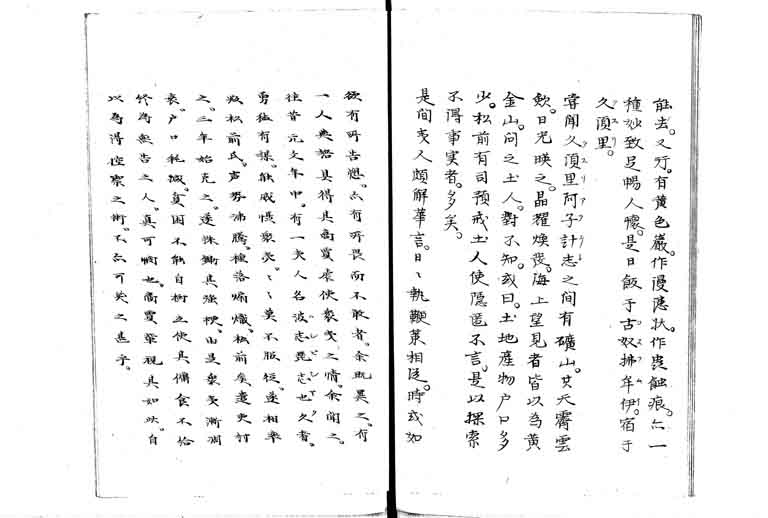 能去。又行。有黄色巖。作漫漶状。作虫蝕痕。亦一
種妙致足暢人懐。是日飯于古奴拂牟伊。宿于
久須里。
嘗聞久須里阿子計志之間有礦山。其天霽雲
歛。日光映之。晶耀煥發。海上望見者皆以為黄
金山。问之土人。對不知。或曰。土地産物戸口多
少。松前有司預戒土人使隠匿不言。是以探索
不得事実者。多矣。
是间夷人頗解華言。日〻執鞭䇿相従。時或如
欲有所告愬。亦有所畏而不敢者。余既異之。有
一人無辜具得其商賈虐使衆夷之情。余聞之。
往昔元文年中。有一夷人名波志毘志也久者。
勇猛有謀。能威慑衆夷。〻〻莫不服從。遂相率
叛松前氏。声勢沸騰。種落煽熾。松前矣遣吏討
之。三年始克之。遂誅鋤其強梗。由是衆夷漸凋
衰。戸口耗減。貧困不能自樹之使其傭食不给
終為無告之人。真可憫也。商賈輩視其如此。自
以為得控禦之術。不亦可笑之甚乎。